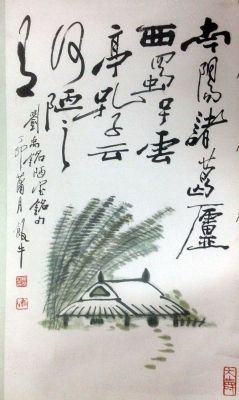 南陽諸葛廬
西蜀子雲
亭孔子云
何陋之
有
劉禹錫陋室銘句